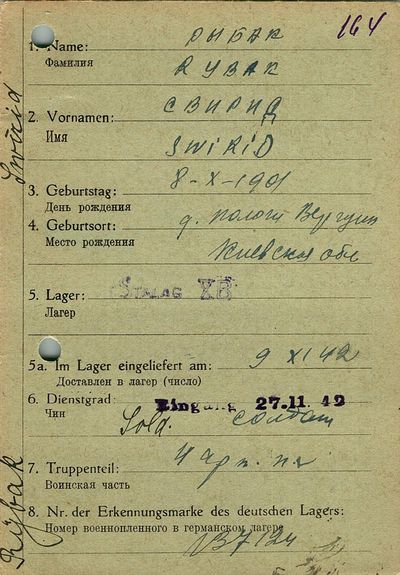 164
РЫБАК
1. Name: RYBAK
Фамилия
СВИРИД
2. Vornamen:
Имя
SWIRID
3. Geburtstag: 8-X-1901
День рождения
4. Geburtsort: д. пологи Вергуны
Место рождения
Киевская обл
5. Lager: STALAG XB
Лагер
5a. Im Lager eingeliefert am: 9 XI 42
Доставлен в лагер (число)
6. Dienstgrad: Eingang 27.11. 42
Чин
Sold. солдат
7. Truppenteil:
Воинская часть
8. Nr. der Erkennungsmarke des deutschen Lagers:
Номер военнопленного в германском лагере
Swirid
Rybak